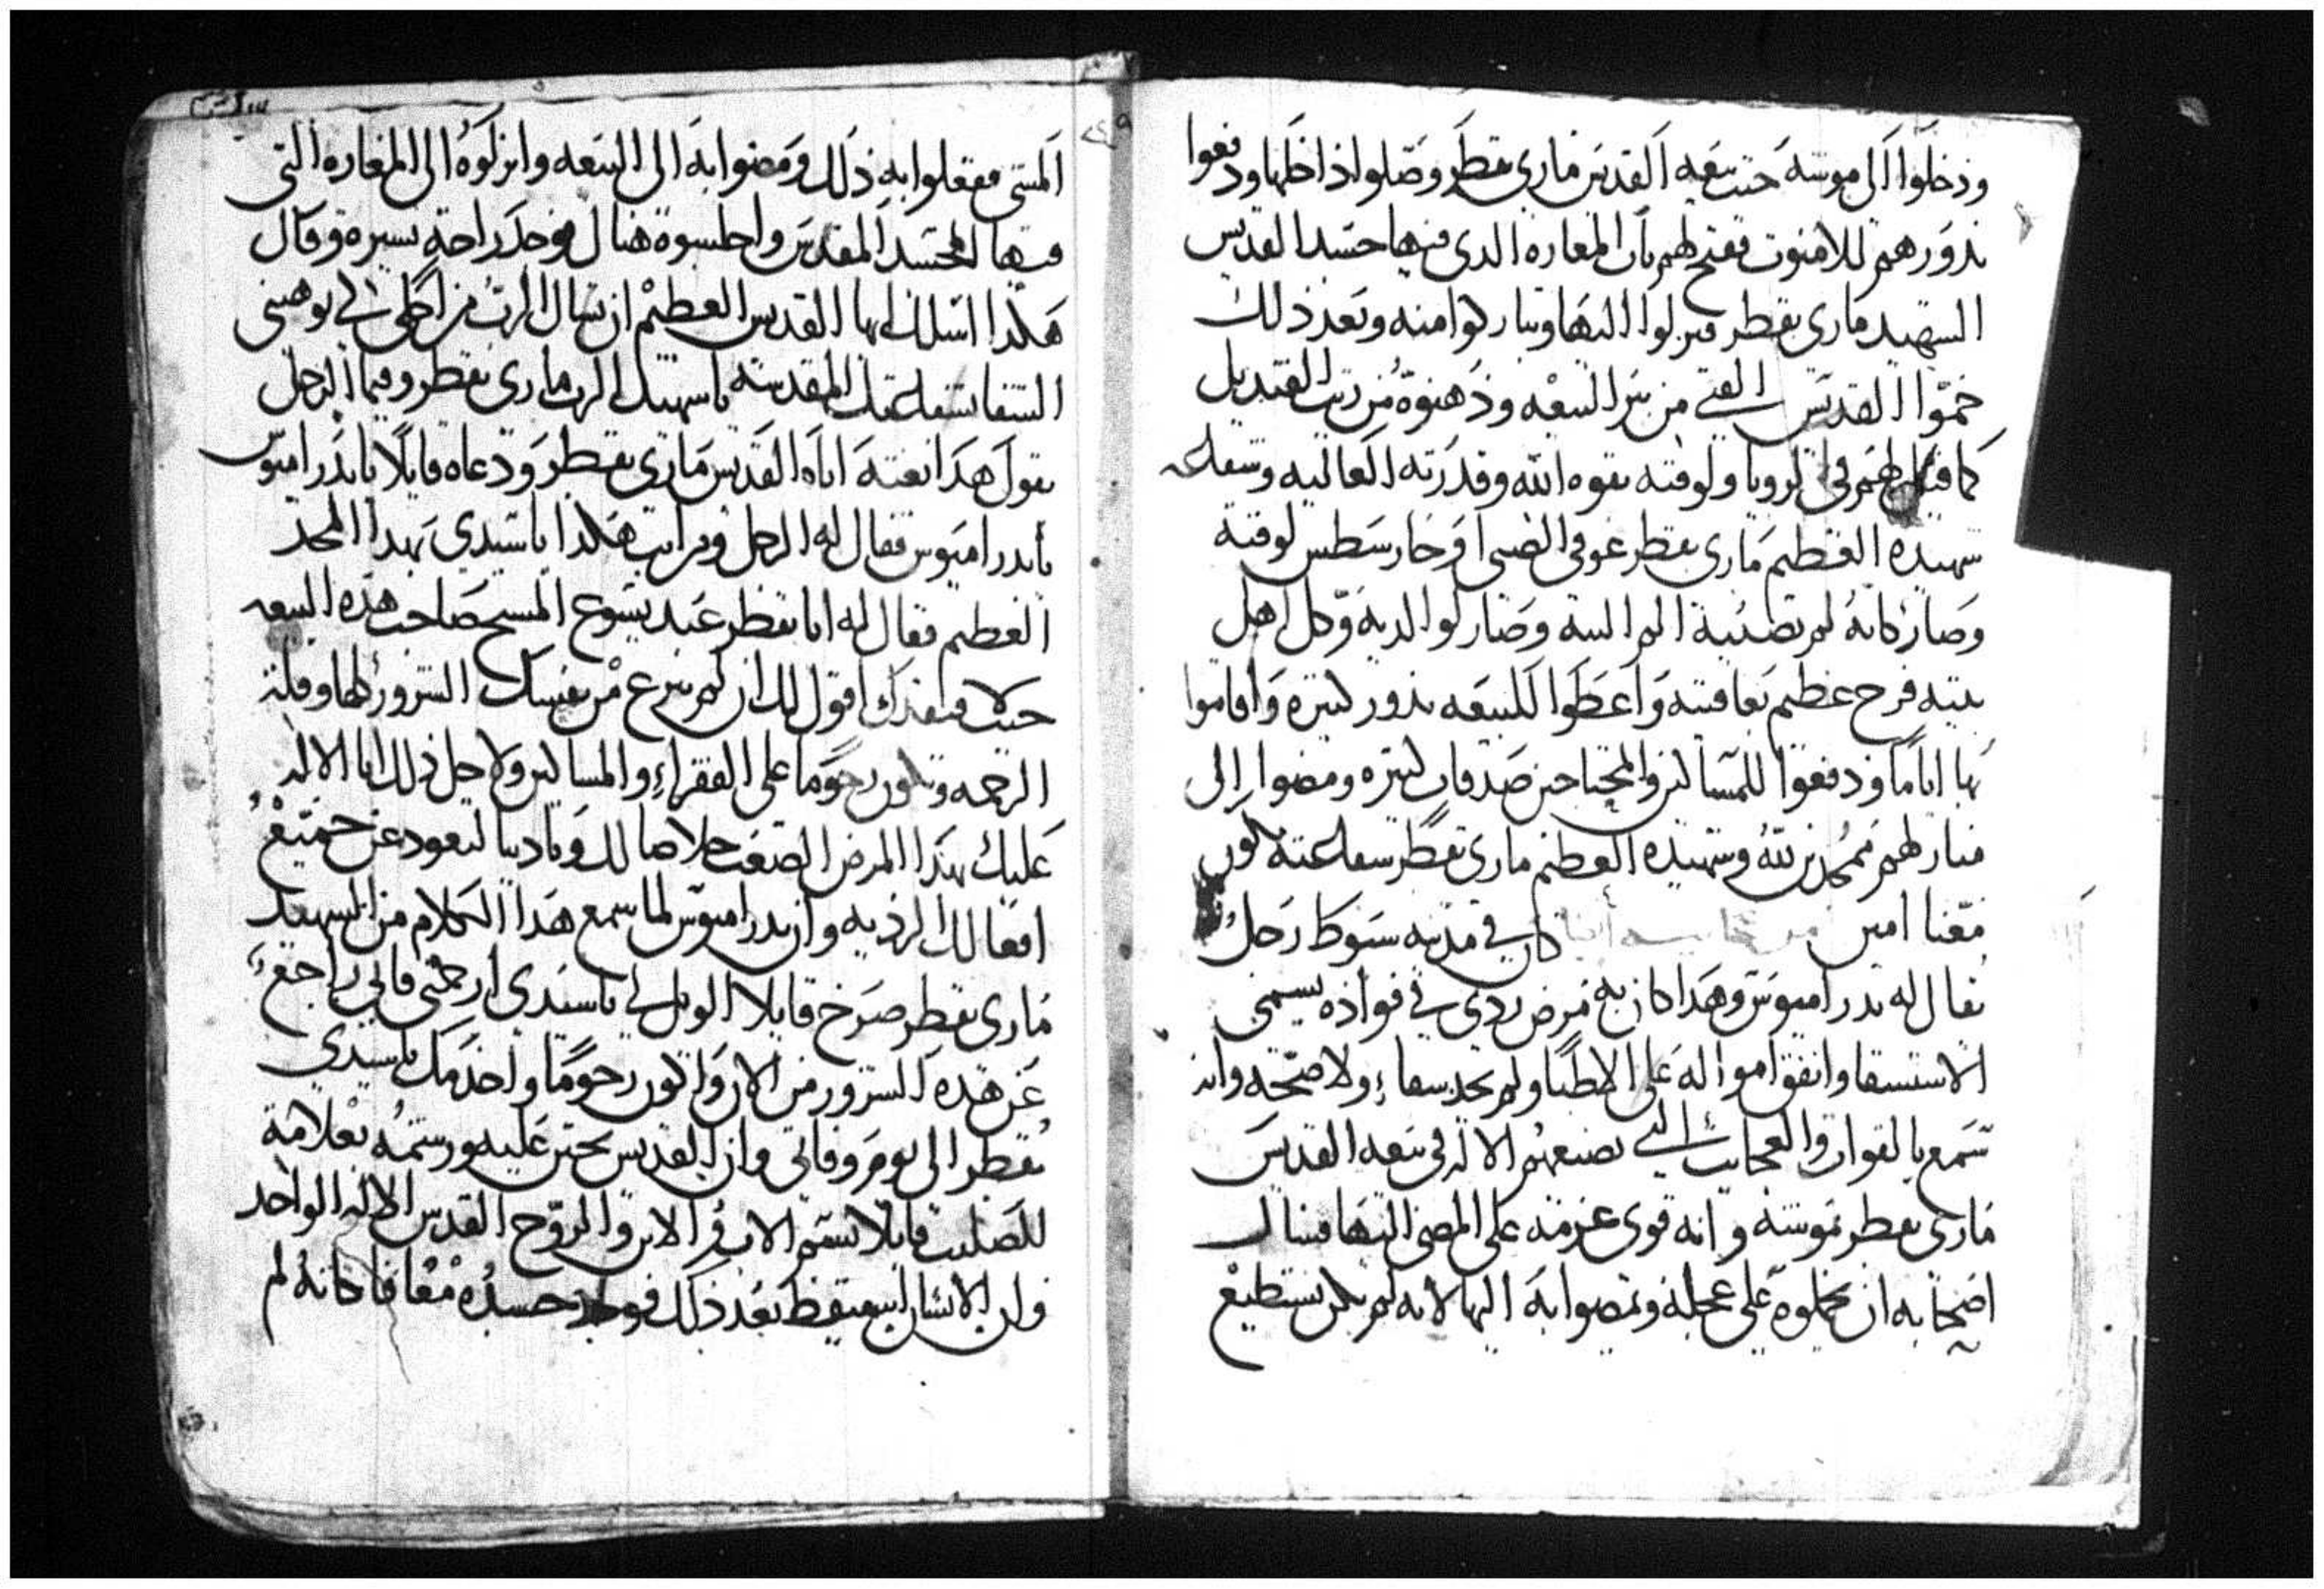 ودخلوا الى موشه حيث بيعه القديس ماري بقطر وصلوا داخلها ودفعوا
ندورهم للامنوت ففتح لهم باب المغاره الدي فيها جسد القديس
الشهيد ماري بقطر فنزلوا اليها وتباركوا منه وبعد ذلك
حموا القديس الفتى من بير البيعه ودهنوه من زيت القنديل
كما قيل لهم في الرويا ولوقته بقوه الله وقدرته العاليه وشفاعه
شهيده العظيم ماري بقطر عوفي الصبي اوخارسطس لوقته
وصار كانه لم تصيبه الم البته وصار لوالديه وكل اهل
بيته فرح عظيم بعافيته واعطوا للبيعه ندور كتيره واقاموا
بها اياما ودفعوا للمساكين والمحتاجين صدقات كتيره ومضوا الى
منازلهم ممجدين لله وشهيده العظيم ماري بقطر شفاعته تكون
معنا امين كان في مدينه سيوط رجل
يقال له بدراميوس وهدا كان به مرض ردي في فواده يسمى
الاستسقا وانفق امواله على الاطبا ولم يجد شفاء ولا صحه وانه
سمع بالقوات والعجايب التي يصنعهم الاله في بيعه القديس
ماري بقطر بموشه وانه قوى عزمه على المضي اليها فسال
اصحابه ان يحملوه على عجله ويمضوا به اليها لانه لم يكن يستطيع
المشي ففعلوا به ذلك ومضوا به الى البيعه وانزلوه الى المغاره التي
فيها الجسد المقدس واجلسوه هناك فوجد راحه يسيره وقال
هكدا اسلك ايها القديس العظيم ان تسال الرب من اجلي لكي يوهبني
الشفا بشفاعتك المقدسه يا شهيد الرب ماري بقطر وفيما الرجل
يقول هدا بغته اتاه القديس ماري بقطر ودعاه قايلا يابدراميوس
يابدراميوس فقال له الرجل ومن انت هكدا ياسيدي بهدا المجد
العظيم فقال له انا بقطر عبد يسوع المسيح صاحب هده البيعه
اقول لك ان لم تنزع من نفسك الشرور كلها وقله
الرحمه وتكون رحوما على الفقراء والمساكين ولاجل ذلك اتا الاله
عليك بهدا المرض الصعب خلاصا لك وتاديبا لتعود عن جميع
افعالك الرديه وان بدراميوس لما سمع هدا الكلام من الشهيد
ماري بقطر صرخ قايلا الويل لي ياسيدي ارحمني فاني راجع
عن هده الشرور من الان واكون رحوما واخدمك ياسيدي
بقطر الى يوم وفاتي وان القديس تحنن عليه ورشمه بعلامة
للصليب قايلا بسم الاب والابن والروح القدس الاله الواحد
وان الانسان استيقظ بعد ذلك فوجد جسده معافا كانه لم